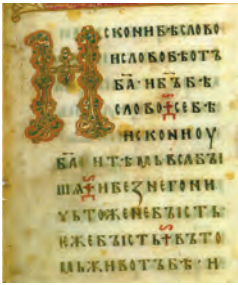 ИСКОНИБѢСЛОВО
ИСЛОВОБѢОТЪ
Б҃А·ИБ҃ЪБѢ
СЛОВО СЕБѢ
ИСКОНИОУ
Б҃А·ИТѢМЬВСАБЪІ
ШѦ ИБЕꙀНЕГОНИ
ЧЬТОЖЕНЕБЪІСТЬ
ЕЖЕБЪІСТЬ ВЪТО
МЬЖИВОТЪБѢ·И